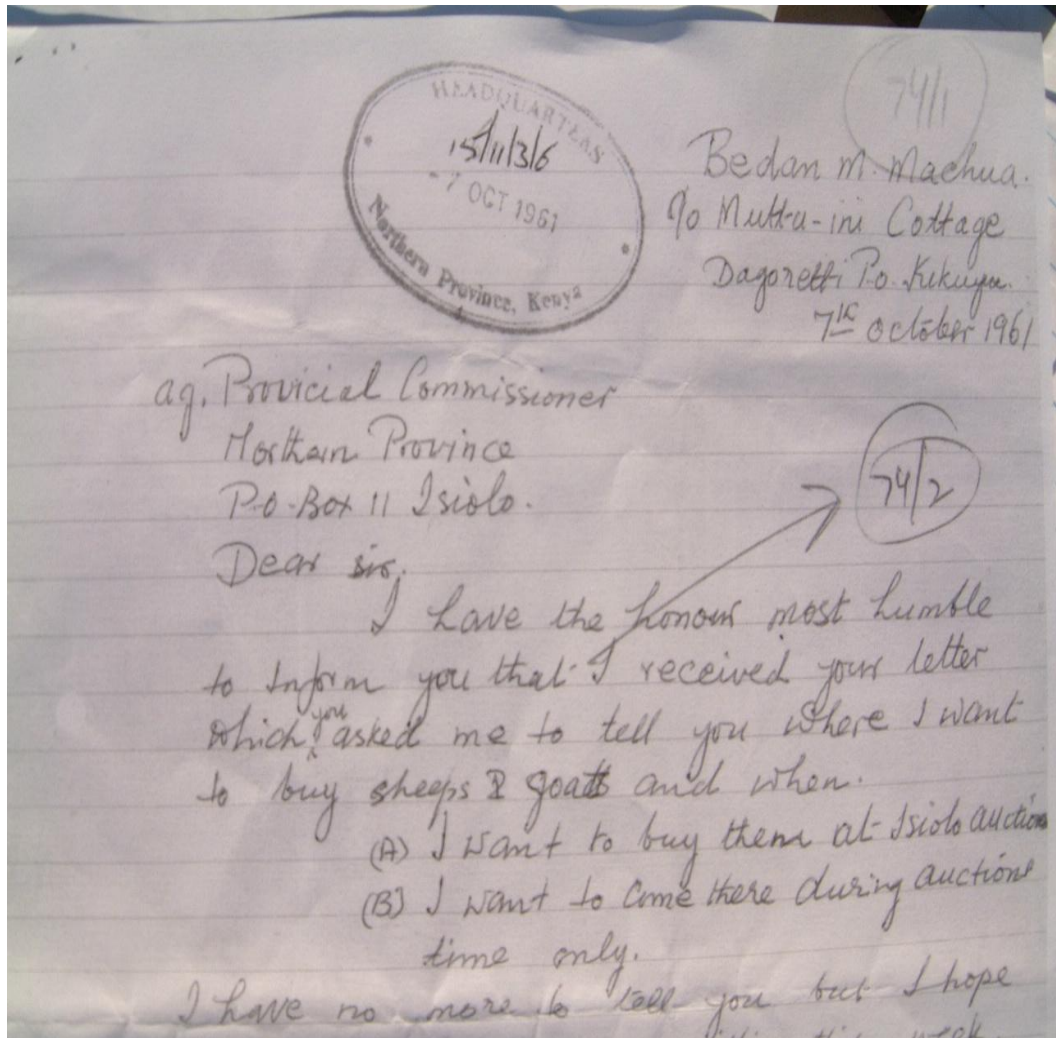 74/1
HEADQUARTERS
15/11/3/6
-7 OCT 1961
Northern Province, Kenya
Bedan M. Machua.
c/o Muttu-ini Cottage
Dagoretti P.o. Kikuyu.
7th October 1961
ag. Provicial Commissioner
Northern Province
P.O. Box 11 Isiolo.
74/2
Dear sir.
I have the honour most humble
to Inform you that I received your letter
which you asked me to tell you where I want
to buy sheeps & goats and when.
(A) I want to buy them at Isiolo auction
(B) I want to come there during auction
time only.
I have no more to tell you but I hope
this week